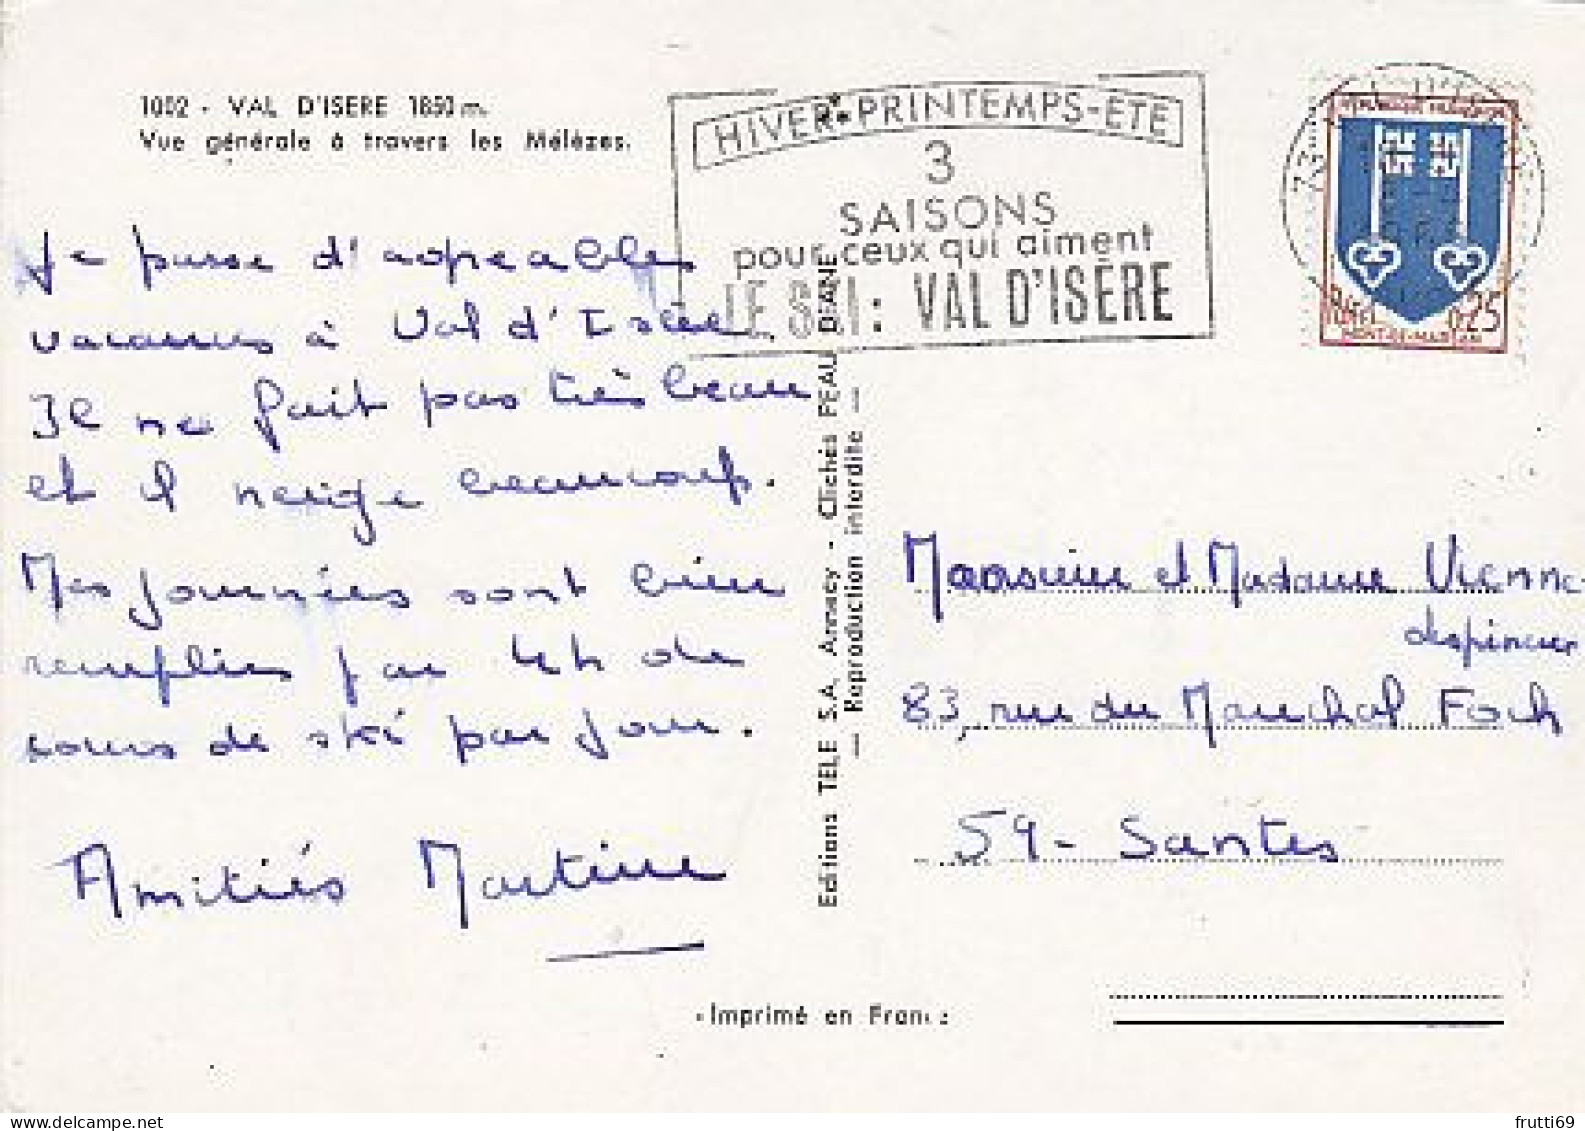 1002 - VAL D'ISERE 1850 m.
Vue générale à travers les Mélèzes.
HIVER-PRINTEMPS-ETE
3
SAISONS
pour ceux qui aiment
LE SKI: VAL D'ISERE
0,25
MONT-DE-MARSAN
Je passe d'agréables
vacances à Val d'Isère
Il ne fait pas très beau
et il neige beaucoup.
Mes journées sont bien
remplies par 4h de
cours de ski par jour.
Amitiés Martine
Editions TELE S.A. Annecy - Clichés PEAU DIANE
— Reproduction interdite —
Monsieur et Madame Vienne
83, rue du Maréchal Foch
59 - Santes
Imprimé en France
frutti69